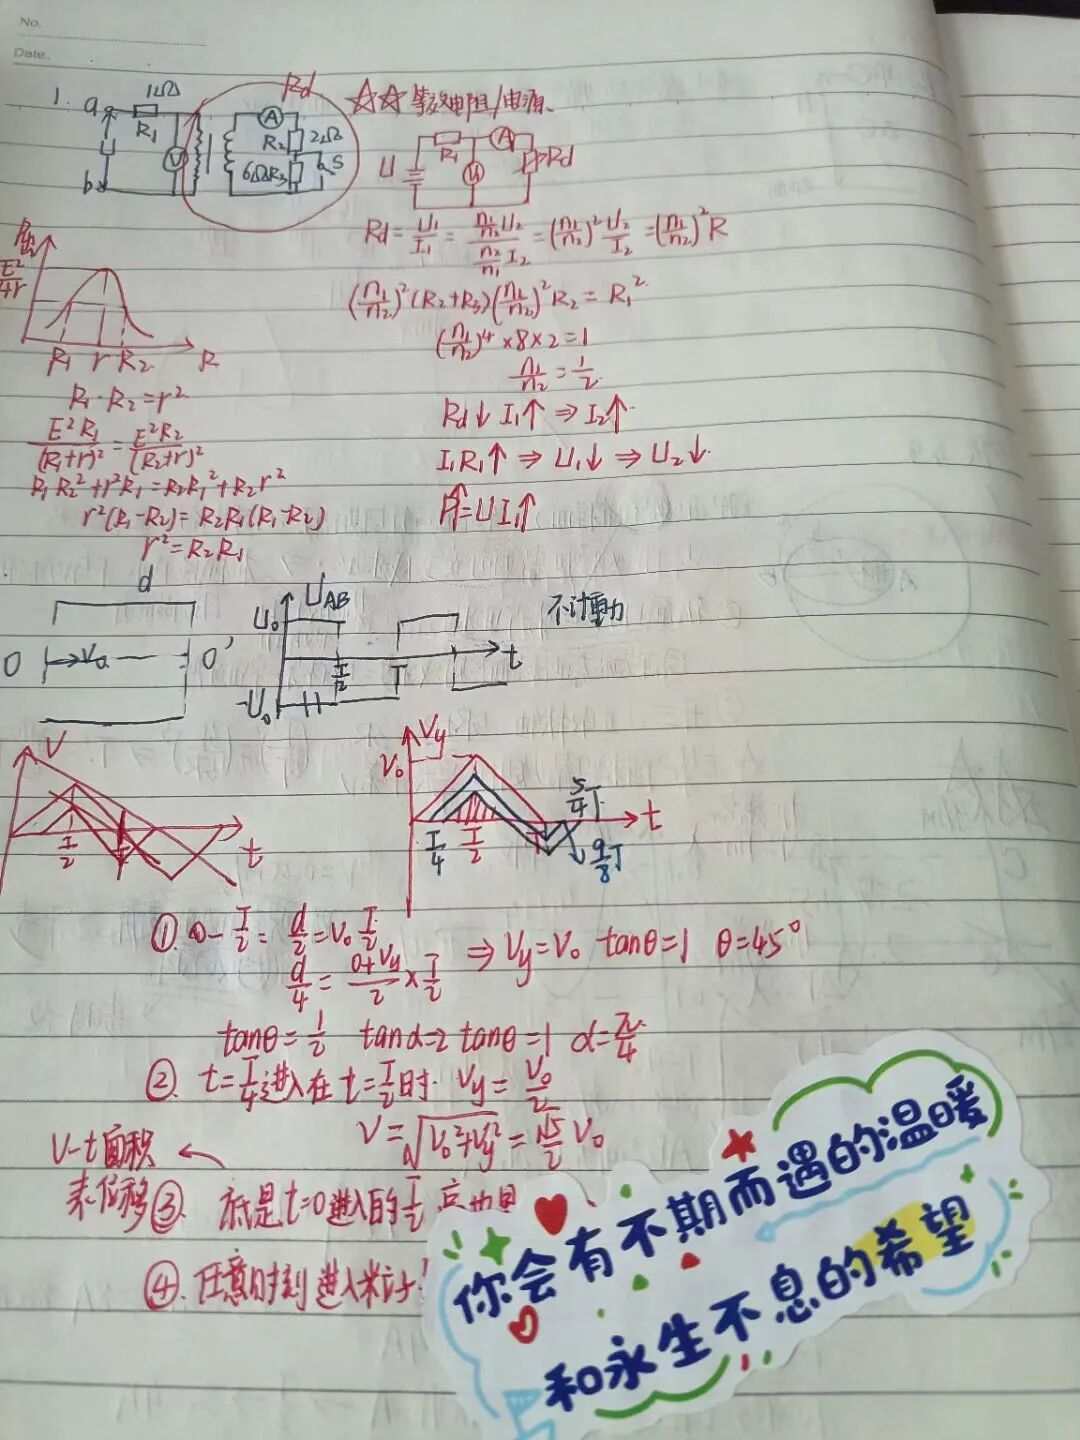 No.
Date.
1. a 1Ω R₁ V b A R₂ 2Ω 6Ω R₃ S Rd
☆☆ 等效电阻/电源、
U R₁ A Rd
Rd = U₁/I₁ = (n₁/n₂ U₂)/(n₂/n₁ I₂) = (n₁/n₂)² U₂/I₂ = (n₁/n₂)² R
(n₁/n₂)² (R₂+R₃) (n₁/n₂)² R₂ = R₁²
(n₁/n₂)⁴ × 8 × 2 = 1
n₁/n₂ = 1/2
Rd↓ I₁↑ ⇒ I₂↑
I₁R₁↑ ⇒ U₁↓ ⇒ U₂↓
P↑=UI₁↑
E²/4r
R₁ r R₂ R
R₁·R₂=r²
E²R₁/(R₁+r)² = E²R₂/(R₂+r)²
R₁R₂²+r²R₁=R₂R₁²+R₂r²
r²(R₁-R₂)=R₂R₁(R₁-R₂)
r²=R₂R₁
d
O V₀ O'
U_AB U₀ -U₀ T/2 T t
不计重力
V T/2 T t
Vy V₀ T/4 T/2 T 5/4T 9/8T t
① 0-T/2: d/2=V₀T/2
d/4 = (0+Vy)/2 × T/2 ⇒ Vy=V₀ tanθ=1 θ=45°
tanθ=1/2 tanα=2 tanθ=1 α=π/4
② t=T/4进入在t=T/2时 Vy=V₀/2
V=√(V₀²+Vy²)=√5/2 V₀
V-t面积
表位移
③ 底是t=0进入的1/2
④ 任意时刻进入粒子
你会有不期而遇的温暖
和永生不息的希望